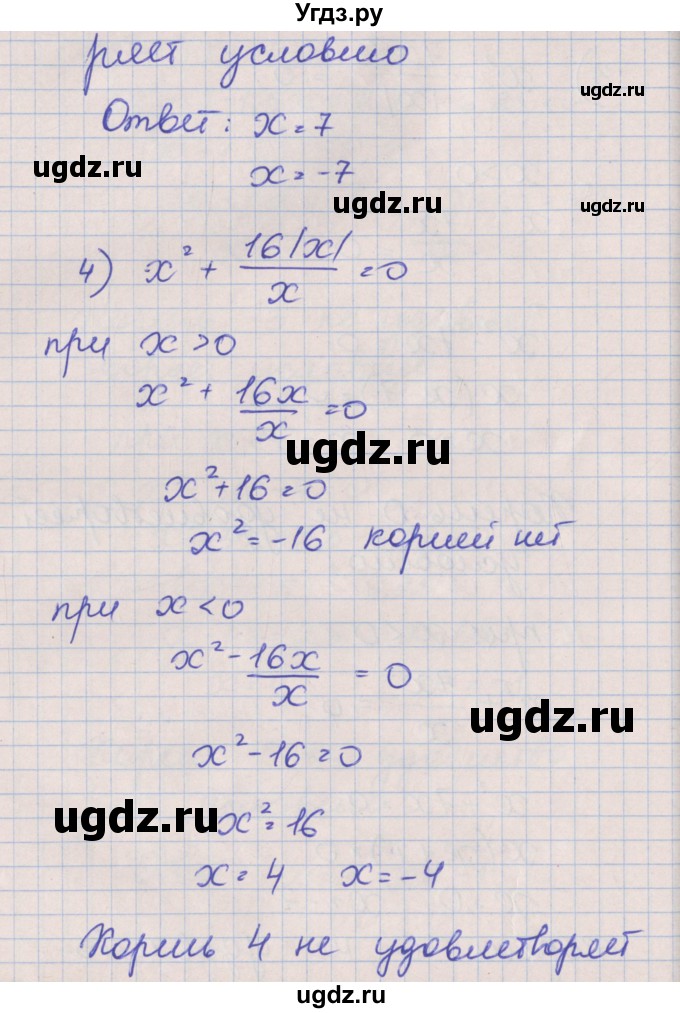 Угдз.ру
ряет условию
ugdz.ru
Ответ: x = 7
ugdz.ru
x = -7
ugdz.ru
ugdz.ru
4) x² + 16|x|/x = 0
при x > 0
x² + 16x/x = 0
ugdz.ru
x² + 16 = 0
x² = -16 корней нет
при x < 0
x² - 16x/x = 0
ugdz.ru
x² - 16 = 0
ugdz.ru
x² = 16
x = 4 x = -4
Корень 4 не удовлетворяет
ugdz.ru